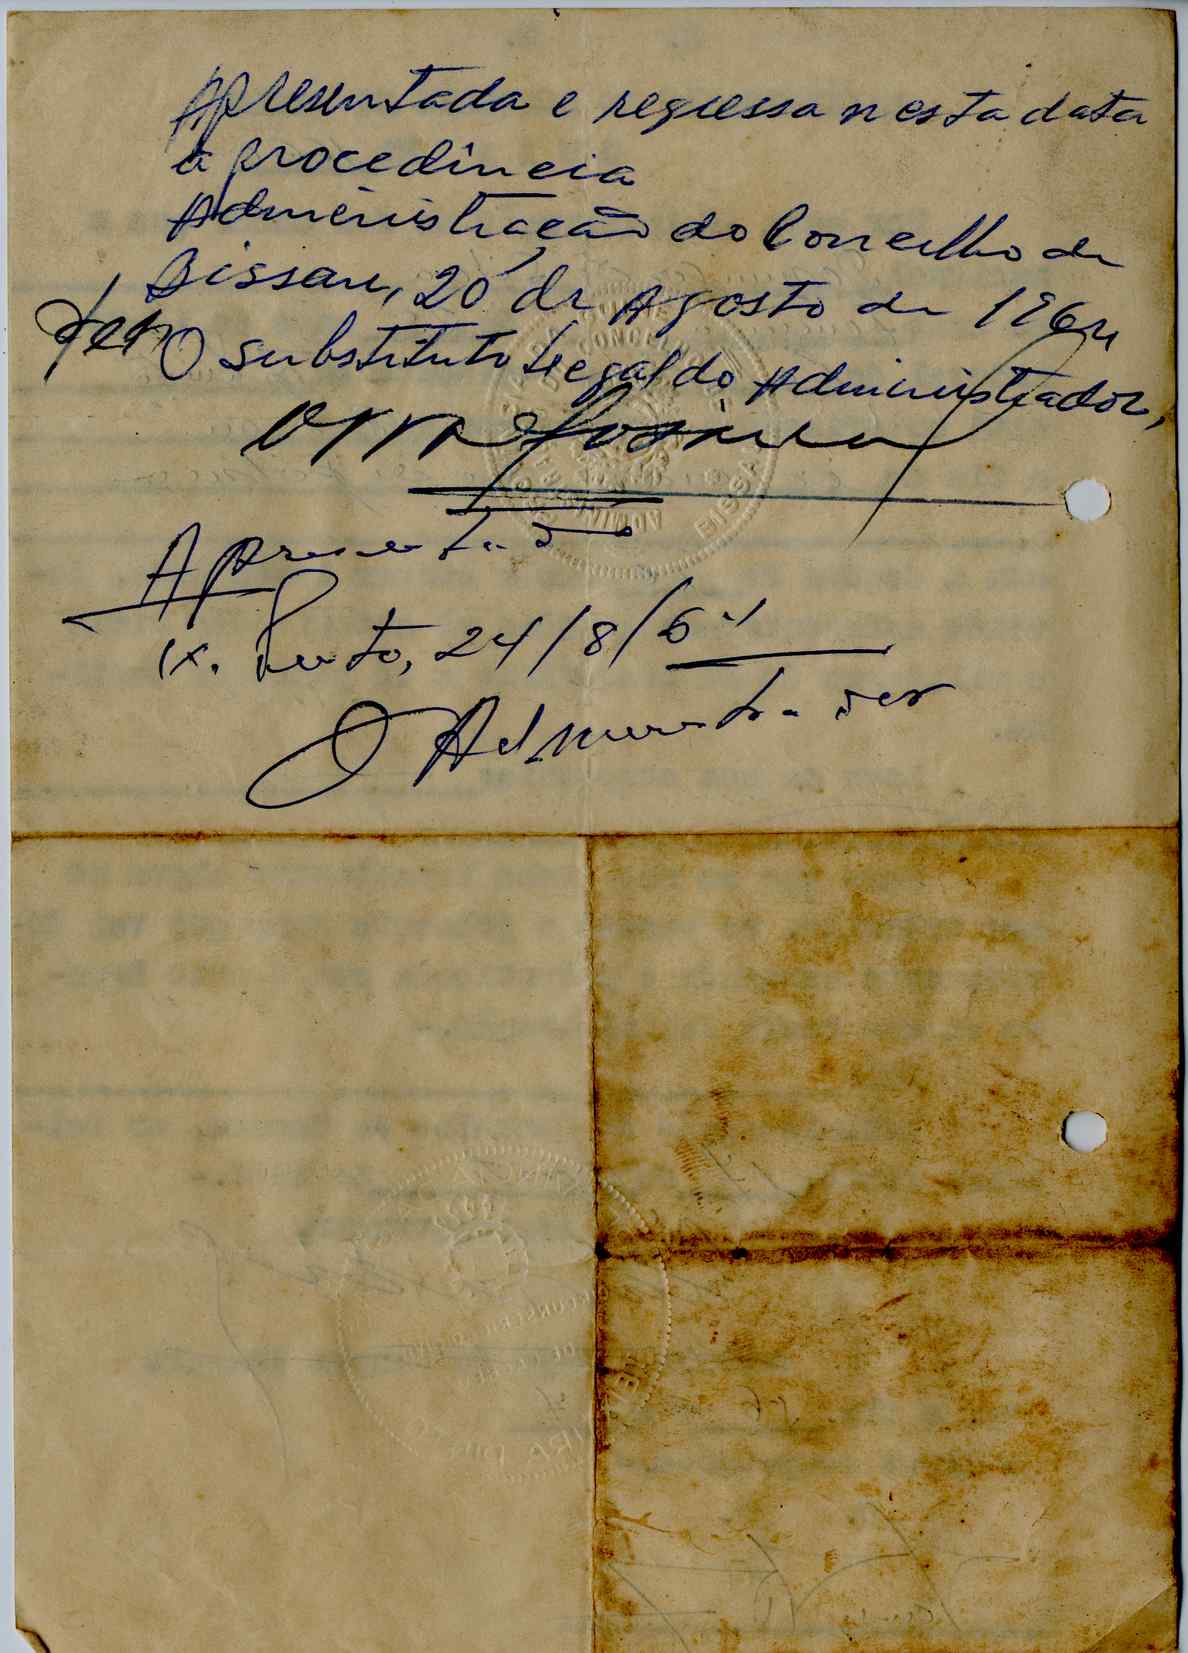 Apresentada e regressa nesta data
à procedência
Administração do Concelho de
Bissau, 20 de Agosto de 1964
O substituto Legal do Administrador,
Apresentado
Pinto, 24/8/64
O Administrador